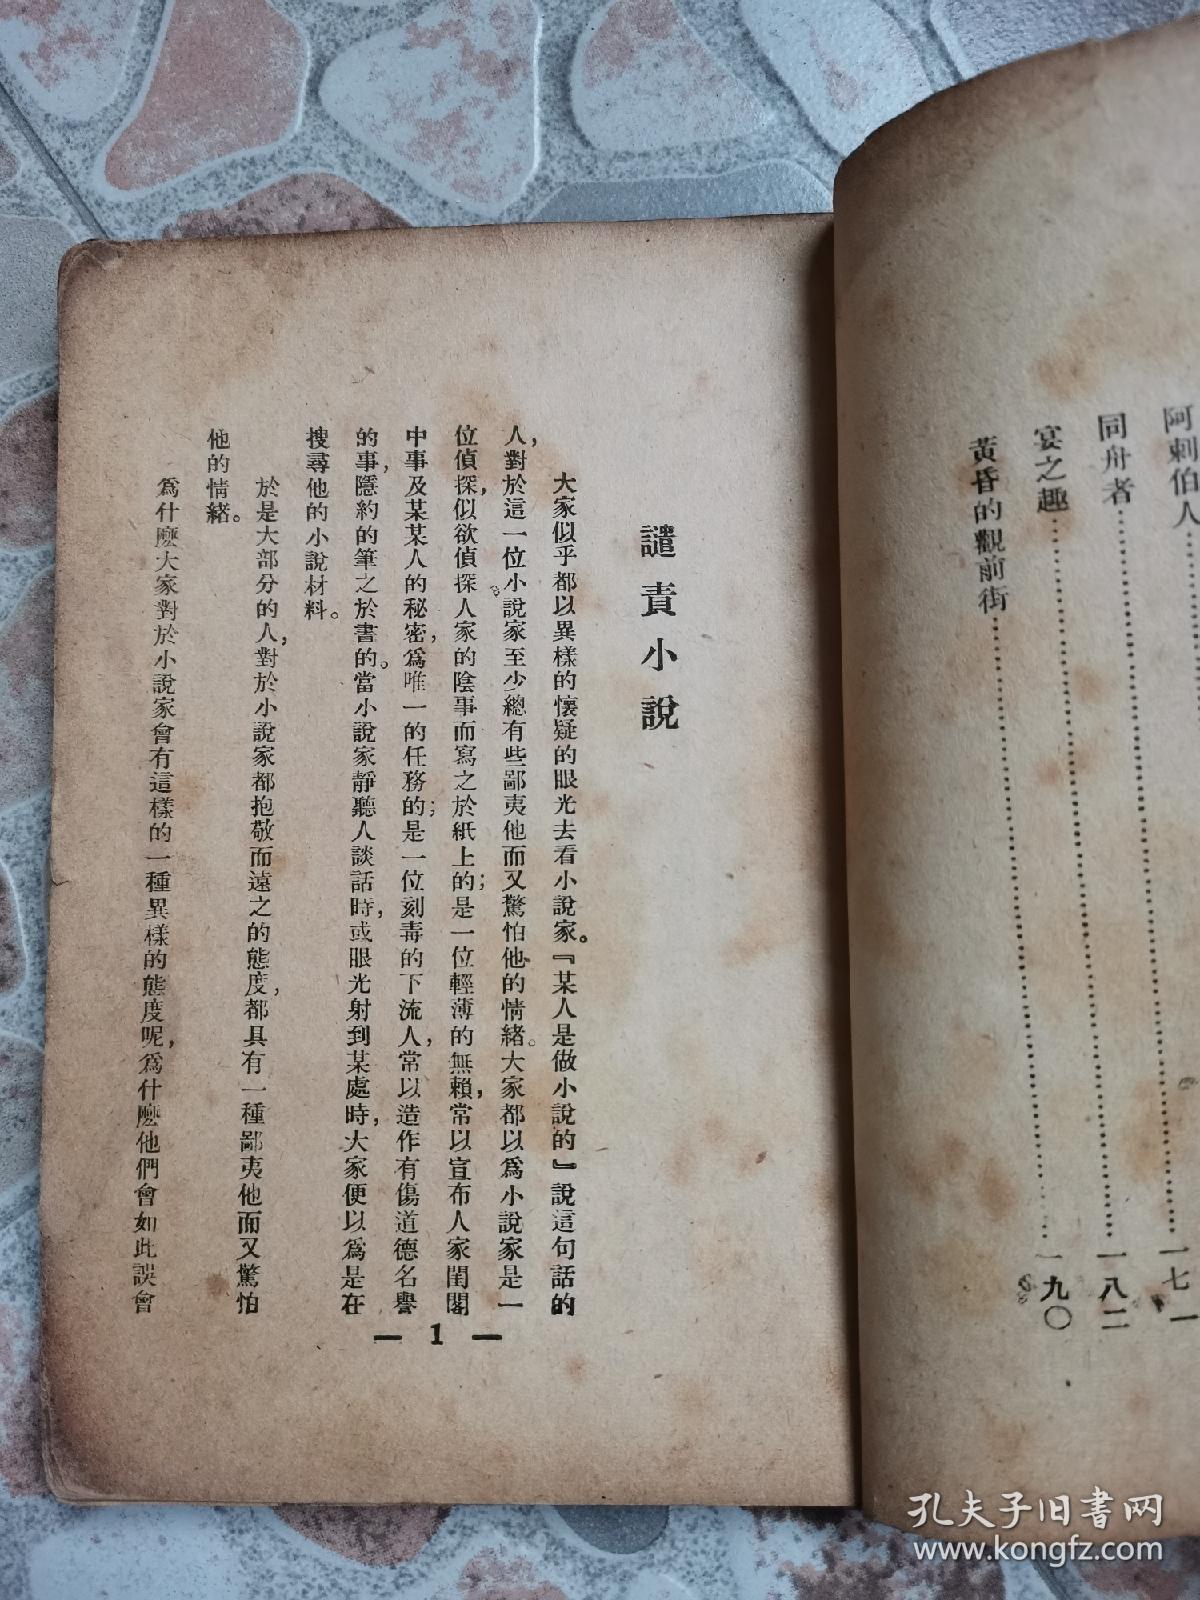 阿剌伯人……一七一
同舟者……一八二
宴之趣……一九〇
黃昏的觀前街……
譴責小說
大家似乎都以異樣的懷疑的眼光去看小說家。『某人是做小說的』說這句話的
人,對於這一位小說家至少總有些鄙夷他而又驚怕他的情緒。大家都以爲小說家是一
位偵探,似欲偵探人家的陰事而寫之於紙上的;是一位輕薄的無賴,常以宣布人家閨閣
中事及某某人的秘密,爲唯一的任務的;是一位刻毒的下流人,常以造作有傷道德名譽
的事,隱約的筆之於書的。當小說家靜聽人談話時,或眼光射到某處時,大家便以爲是在
搜尋他的小說材料。
於是大部分的人,對於小說家都抱敬而遠之的態度,都具有一種鄙夷他而又驚怕
他的情緒。
爲什麼大家對於小說家會有這樣的一種異樣的態度呢,爲什麼他們會如此誤會
— 1 —
孔夫子旧书网
www.kongfz.com